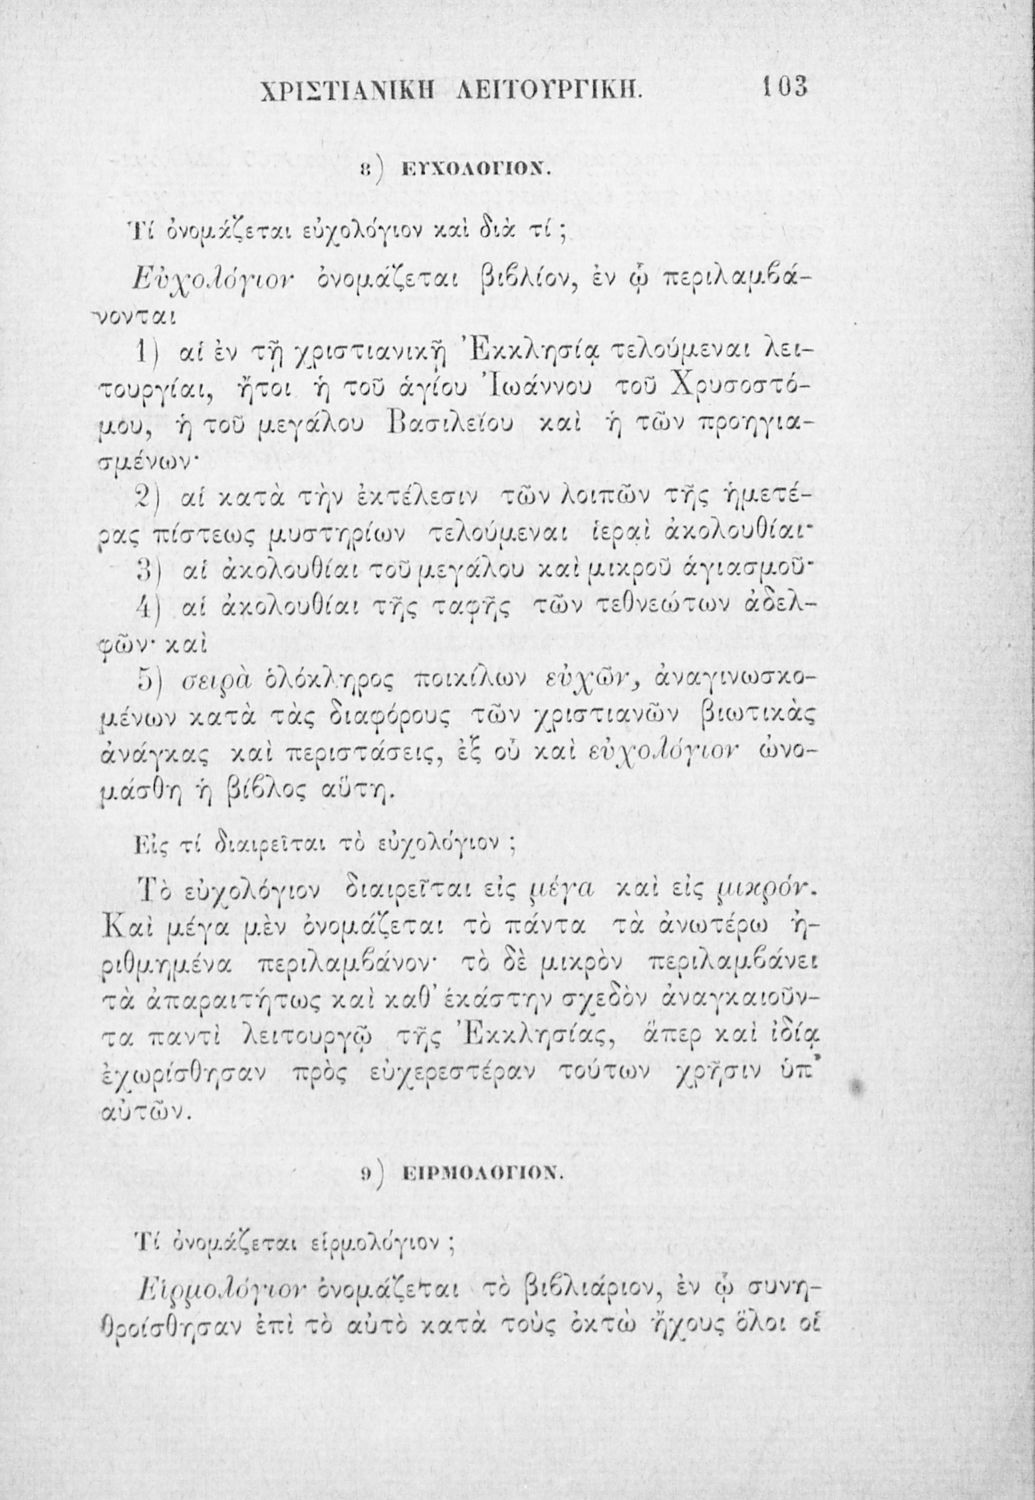 ΧΡΙΣΤΙΑΝΙΚΗ ΛΕΙΤΟΥΡΓΙΚΗ. 103
8) ΕΥΧΟΛΟΓΙΟΝ.
Τί ὀνομάζεται εὐχολόγιον καὶ διὰ τί ;
Εὐχολόγιον ὀνομάζεται βιϐλίον, ἐν ᾧ περιλαμϐά-
νονται
1) αἱ ἐν τῇ χριστιανικῇ Ἐκκλησίᾳ τελούμεναι λει-
τουργίαι, ἤτοι ἡ τοῦ ἁγίου Ἰωάννου τοῦ Χρυσοστό-
μου, ἡ τοῦ μεγάλου Βασιλείου καὶ ἡ τῶν προηγια-
σμένων·
2) αἱ κατὰ τὴν ἐκτέλεσιν τῶν λοιπῶν τῆς ἡμετέ-
ρας πίστεως μυστηρίων τελούμεναι ἱεραὶ ἀκολουθίαι·
3) αἱ ἀκολουθίαι τοῦ μεγάλου καὶ μικροῦ ἁγιασμοῦ·
4) αἱ ἀκολουθίαι τῆς ταφῆς τῶν τεθνεώτων ἀδελ-
φῶν· καὶ
5) σειρὰ ὁλόκληρος ποικίλων εὐχῶν, ἀναγινωσκο-
μένων κατὰ τὰς διαφόρους τῶν χριστιανῶν βιωτικὰς
ἀνάγκας καὶ περιστάσεις, ἐξ οὗ καὶ εὐχολόγιον ὠνο-
μάσθη ἡ βίϐλος αὕτη.
Εἰς τί διαιρεῖται τὸ εὐχολόγιον ;
Τὸ εὐχολόγιον διαιρεῖται εἰς μέγα καὶ εἰς μικρόν.
Καὶ μέγα μὲν ὀνομάζεται τὸ πάντα τὰ ἀνωτέρω ἠ-
ριθμημένα περιλαμϐάνον· τὸ δὲ μικρὸν περιλαμϐάνει
τὰ ἀπαραιτήτως καὶ καθ᾿ ἑκάστην σχεδὸν ἀναγκαιοῦν-
τα παντὶ λειτουργῷ τῆς Ἐκκλησίας, ἅπερ καὶ ἰδίᾳ
ἐχωρίσθησαν πρὸς εὐχερεστέραν τούτων χρῆσιν ὑπ᾿
αὐτῶν.
9) ΕΙΡΜΟΛΟΓΙΟΝ.
Τί ὀνομάζεται εἱρμολόγιον ;
Εἱρμολόγιον ὀνομάζεται τὸ βιϐλιάριον, ἐν ᾧ συνη-
θροίσθησαν ἐπὶ τὸ αὐτὸ κατὰ τοὺς ὀκτὼ ἤχους ὅλοι οἱ